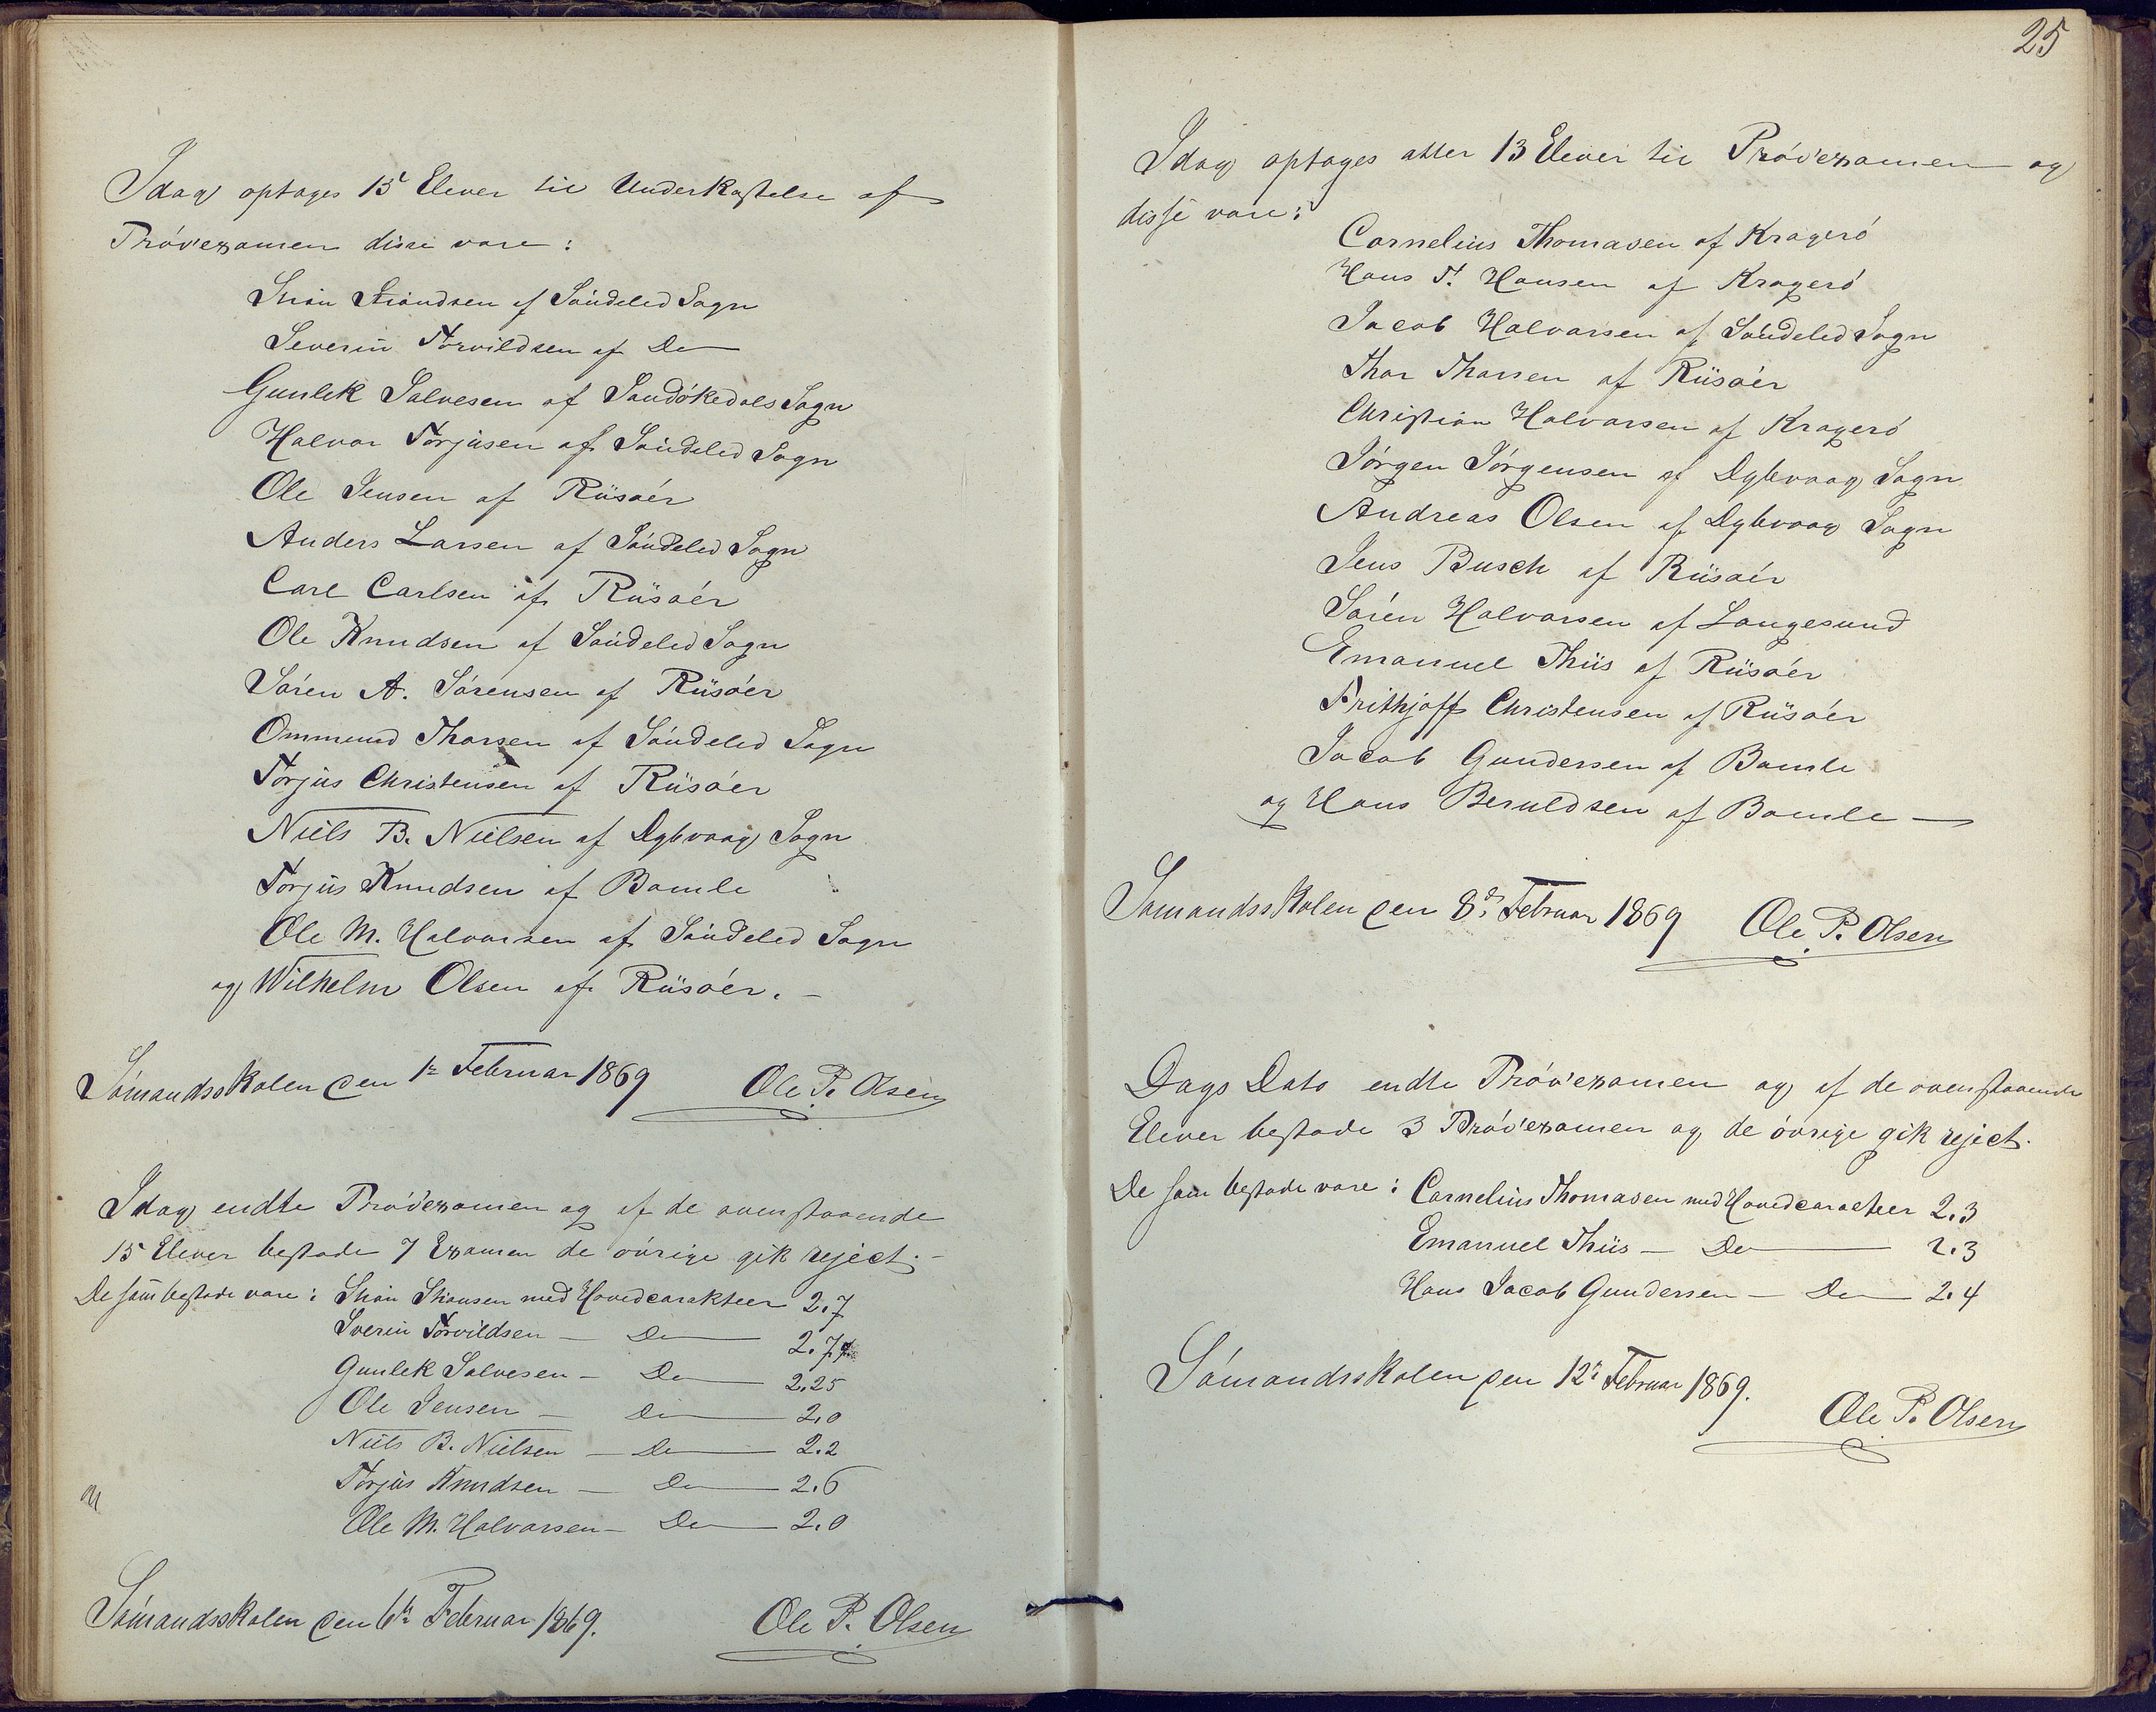 Idag optages 15 Elever til Underkastelse af
Prøvexamen disse vare:
Stian Stiandsen af Søndeled Sogn
Severin Torvildsen af Do
Gunlek Salvesen af Sandøkedals Sogn
Halvor Torjusen af Søndeled Sogn
Ole Jensen af Riisøer
Anders Larsen af Søndeled Sogn
Carl Carlsen af Riisøer
Ole Knudsen af Søndeled Sogn
Søren A. Sørensen af Riisøer
Ommund Thorsen af Søndeled Sogn
Torjus Christensen af Riisøer
Niels B. Nielsen af Dybvaag Sogn
Torjus Knudsen af Bamle
Ole M. Halvorsen af Søndeled Sogn
og Wilhelm Olsen af Riisøer. –
Sømandsskolen den 1ste Februar 1869 Ole P. Olsen
Idag endte Prøvexamen og af de ovenstaaende
15 Elever bestode 7 Examen de øvrige gik reject. –
De som bestode vare: Stian Stiansen med Hovedcarakteer 2.7
Sverin Torvildsen – Do – 2.7
Gunlek Salvesen – Do – 2.25
Ole Jensen – Do – 2.0
Niels B. Nielsen – Do – 2.2
Torjus Knudsen – Do – 2.6
Ole M. Halvorsen – Do – 2.0
Sømandsskolen den 6te Februar 1869. Ole P. Olsen
25
Idag optages atter 13 Elever til Prøvexamen og
disse vare:
Cornelius Thomasen af Kragerø
Hans T. Hansen af Kragerø
Jacob Halvorsen af Søndeled Sogn
Thor Thorsen af Riisøer
Christian Halvorsen af Kragerø
Jørgen Jørgensen af Dybvaag Sogn
Andreas Olsen af Dybvaag Sogn
Jens Busch af Riisøer
Søren Halvorsen af Langesund
Emanuel Thiis af Riisøer
Frithjoff Christensen af Riisøer
Jacob Gundersen af Bamle
og Hans Beruldsen af Bamle –
Sømandsskolen den 8de Februar 1869 Ole P. Olsen
Dags Dato endte Prøvexamen og af de ovenstaaende
Elever bestode 3 Prøvexamen og de øvrige gik reject.
De som bestode vare: Cornelius Thomasen med Hovedcaracteer 2.3
Emanuel Thiis – Do – 2.3
Hans Jacob Gundersen – Do – 2.4
Sømandsskolen den 12te Februar 1869.
Ole P. Olsen